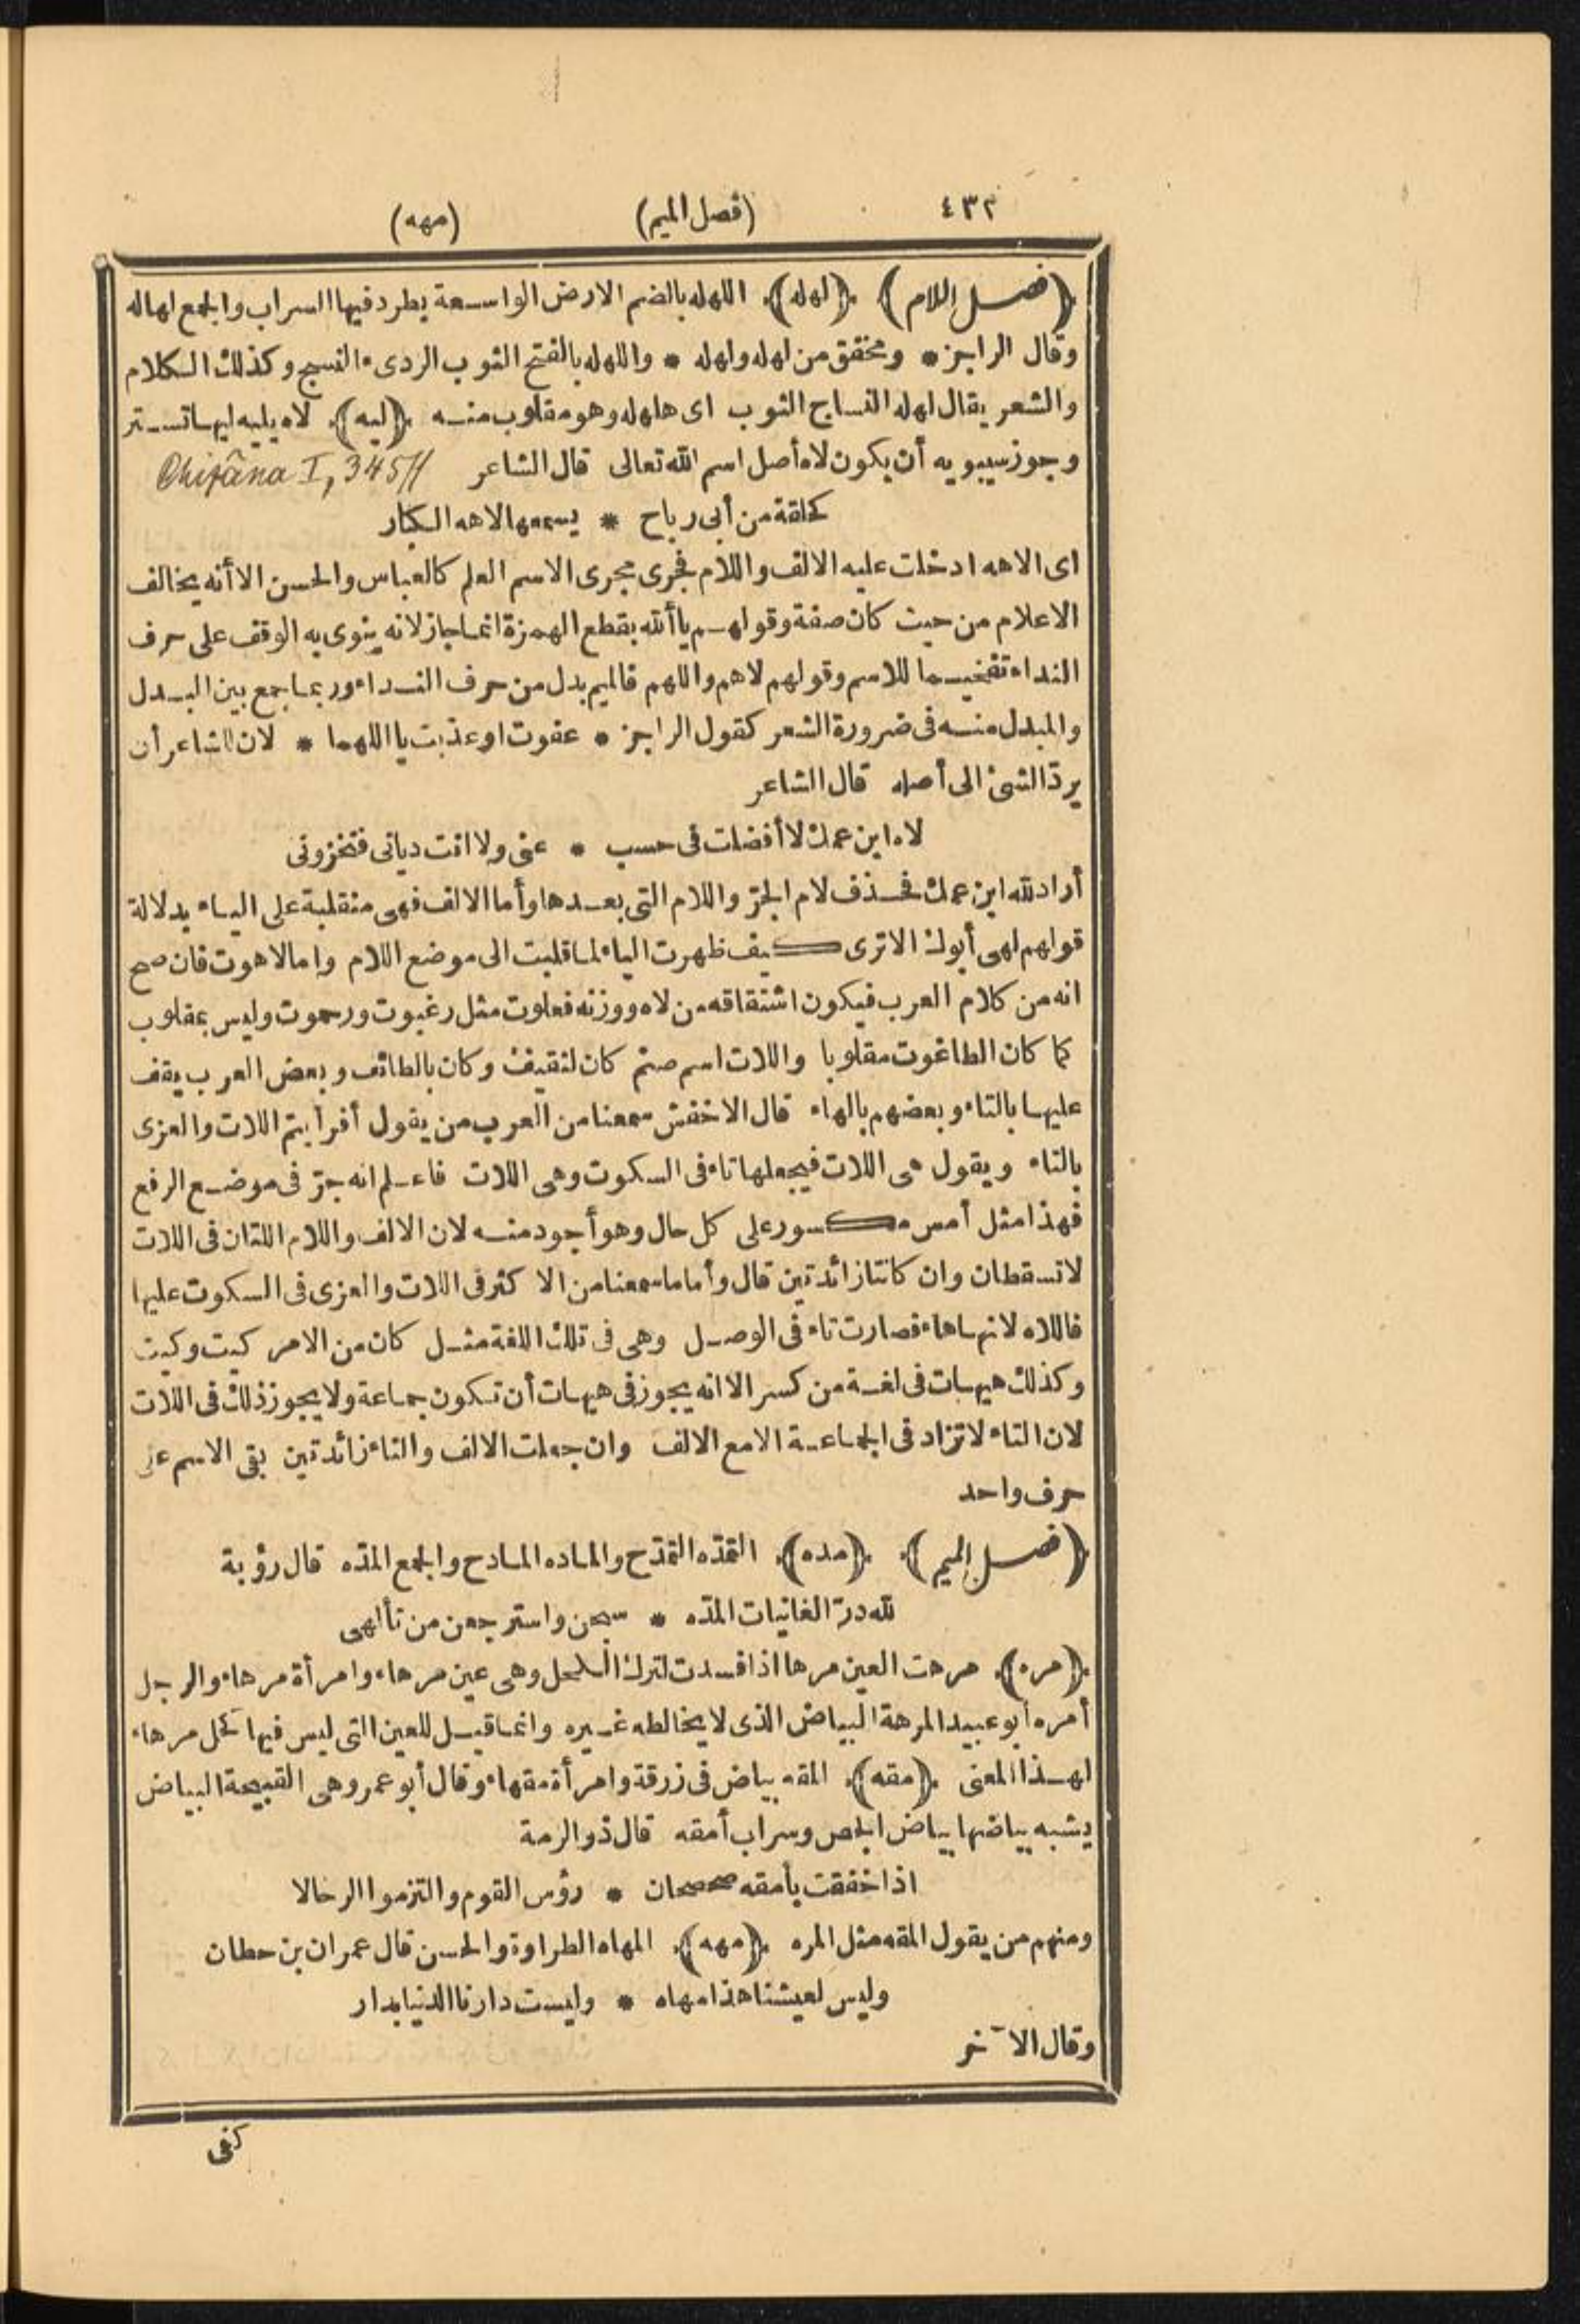 ٤٣٢ (فصل الميم) (مهه)
﴿فصل اللام﴾ ﴿لهله﴾ اللهله بالضم الارض الواسعة يطرد فيها السراب والجمع لهاله
وقال الراجز * ومخفق من لهله ولهله * واللهله بالفتح الثوب الردىء النسج وكذلك الكلام
والشعر يقال لهله النساج الثوب اى هلهله وهو مقلوب منه ﴿ليه﴾ لاه يليه ليها تستر
وجوز سيبويه أن يكون لاه أصل اسم الله تعالى قال الشاعر Chizâna I, 345 ff
كحلقة من أبى رباح * يسمعها لاهه الكبار
اى الاهه ادخلت عليه الالف واللام فجرى مجرى الاسم العلم كالعباس والحسن الا أنه يخالف
الاعلام من حيث كان صفة وقولهم يا ألله بقطع الهمزة انما جاز لانه ينوى به الوقف على حرف
النداء تفخيما للاسم وقولهم لاهم واللهم فالميم بدل من حرف النداء وربما جمع بين البدل
والمبدل منه فى ضرورة الشعر كقول الراجز * عفوت او عذبت يا اللهما * لان للشاعر أن
يردّ الشئ الى أصله قال الشاعر
لاه ابن عمك لا أفضلت فى حسب * عنى ولا انت ديانى فتخزونى
أراد لله ابن عمك فحذف لام الجرّ واللام التى بعدها وأما الالف فهى منقلبة على الياء بدلالة
قولهم لهى أبوك الا ترى كيف ظهرت الياء لما قلبت الى موضع اللام واما لاهوت فان صح
انه من كلام العرب فيكون اشتقاقه من لاه ووزنه فعلوت مثل رغبوت ورحموت وليس بمقلوب
كما كان الطاغوت مقلوبا واللات اسم صنم كان لثقيف وكان بالطائف وبعض العرب يقف
عليها بالتاء وبعضهم بالهاء قال الاخفش سمعنا من العرب من يقول أفرأيتم اللات والعزى
بالتاء ويقول هى اللات فيجعلها تاء فى السكوت وهى اللات فاعلم انه جرّ فى موضع الرفع
فهذا مثل أمس مكسور على كل حال وهو أجود منه لان الالف واللام اللتان فى اللات
لا تسقطان وان كانتا زائدتين قال وأما ما سمعنا من الاكثر فى اللات والعزى فى السكوت عليها
فاللاه لانها هاء فصارت تاء فى الوصل وهى فى تلك اللغة مثل كان من الامر كيت وكيت
وكذلك هيهات فى لغة من كسر الا انه يجوز فى هيهات أن تكون جماعة ولا يجوز ذلك فى اللات
لان التاء لا تزاد فى الجماعة الا مع الالف وان جعلت الالف والتاء زائدتين بقى الاسم على
حرف واحد
﴿فصل الميم﴾ ﴿مده﴾ التمدّه التمدّح والماده المادح والجمع المدّه قال رؤبة
لله درّ الغانيات المدّه * سبحن واسترجعن من تألهى
﴿مره﴾ مرهت العين مرها اذا فسدت لترك الكحل وهى عين مرهاء وامرأة مرهاء والرجل
أمره أبو عبيد المرهة البياض الذى لا يخالطه غيره وانما قيل للعين التى ليس فيها كحل مرهاء
لهذا المعنى ﴿مقه﴾ المقه بياض فى زرقة وامرأة مقهاء وقال أبو عمرو هى القبيحة البياض
يشبه بياضها بياض الجص وسراب أمقه قال ذو الرمة
اذا خفقت بأمقه صحصحان * رؤس القوم والتزموا الرحالا
ومنهم من يقول المقه مثل المره ﴿مهه﴾ المهاه الطراوة والحسن قال عمران بن حطان
وليس لعيشنا هذا مهاه * وليست دارنا الدنيا بدار
وقال الآخر
كفى